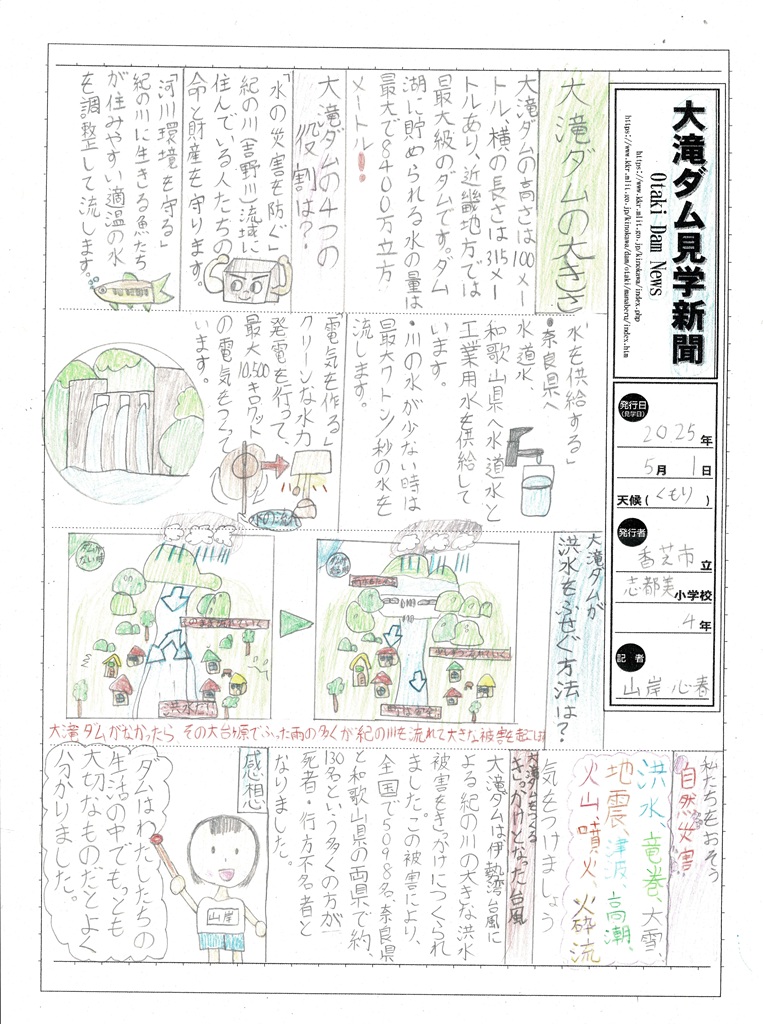 大滝ダム見学新聞
Otaki Dam News
https://www.kkr.mlit.go.jp/kinokawa/index.php
https://www.kkr.mlit.go.jp/kinokawa/dam/otaki/manaberu/index.htm
発行日
(見学日)
2025年
5月1日
天候(くもり)
発行者
香芝市立
志都美小学校
4年
記者
山岸 心春
大滝ダムの大きさ
大滝ダムの高さは100メー
トル、横の長さは315メー
トルあり、近畿地方では
最大級のダムです。ダム
湖に貯められる水の量は
最大で8400万立方
メートル
大滝ダムの4つの
役割は?
「水の災害を防ぐ」
紀の川(吉野川)流域に
住んでいる人たちの
命と財産を守ります。
「河川環境を守る」
紀の川に生きる魚たち
が住みやすい適温の水
を調整して流します。
「水を供給する」
・奈良県へ
水道水、
和歌山県へ水道水と
工業用水を供給して
います。
・川の水が少ない時は
最大クトン/秒の水を
流します。
「電気を作る」
クリーンな水力
発電を行って、
最大10,500キロワット
の電気をつくって
います。
水の流れ
大滝ダムが
洪水をふせぐ方法は?
ダムが
ある時
ダムが
ない時
洪水だ!
大滝ダムがなかったら、その大台ヶ原でふった雨の多くが紀の川を流れて大きな被害を起こす
私たちをおそう
自然災害
洪水、竜巻、大雪、
地震、津波、高潮、
火山噴火、火砕流
気をつけましょう
大滝ダムをつくる
きっかけとなった台風
大滝ダムは伊勢湾台風に
よる紀の川の大きな洪水
被害をきっかけにつくられ
ました。この被害により、
全国で5098名、奈良県
と和歌山県の両県で約、
130名という多くの方が
死者・行方不名者と
なりました。
感想
山岸
ダムはわたしたちの
生活の中でもっとも
大切なものだとよく
分かりました。